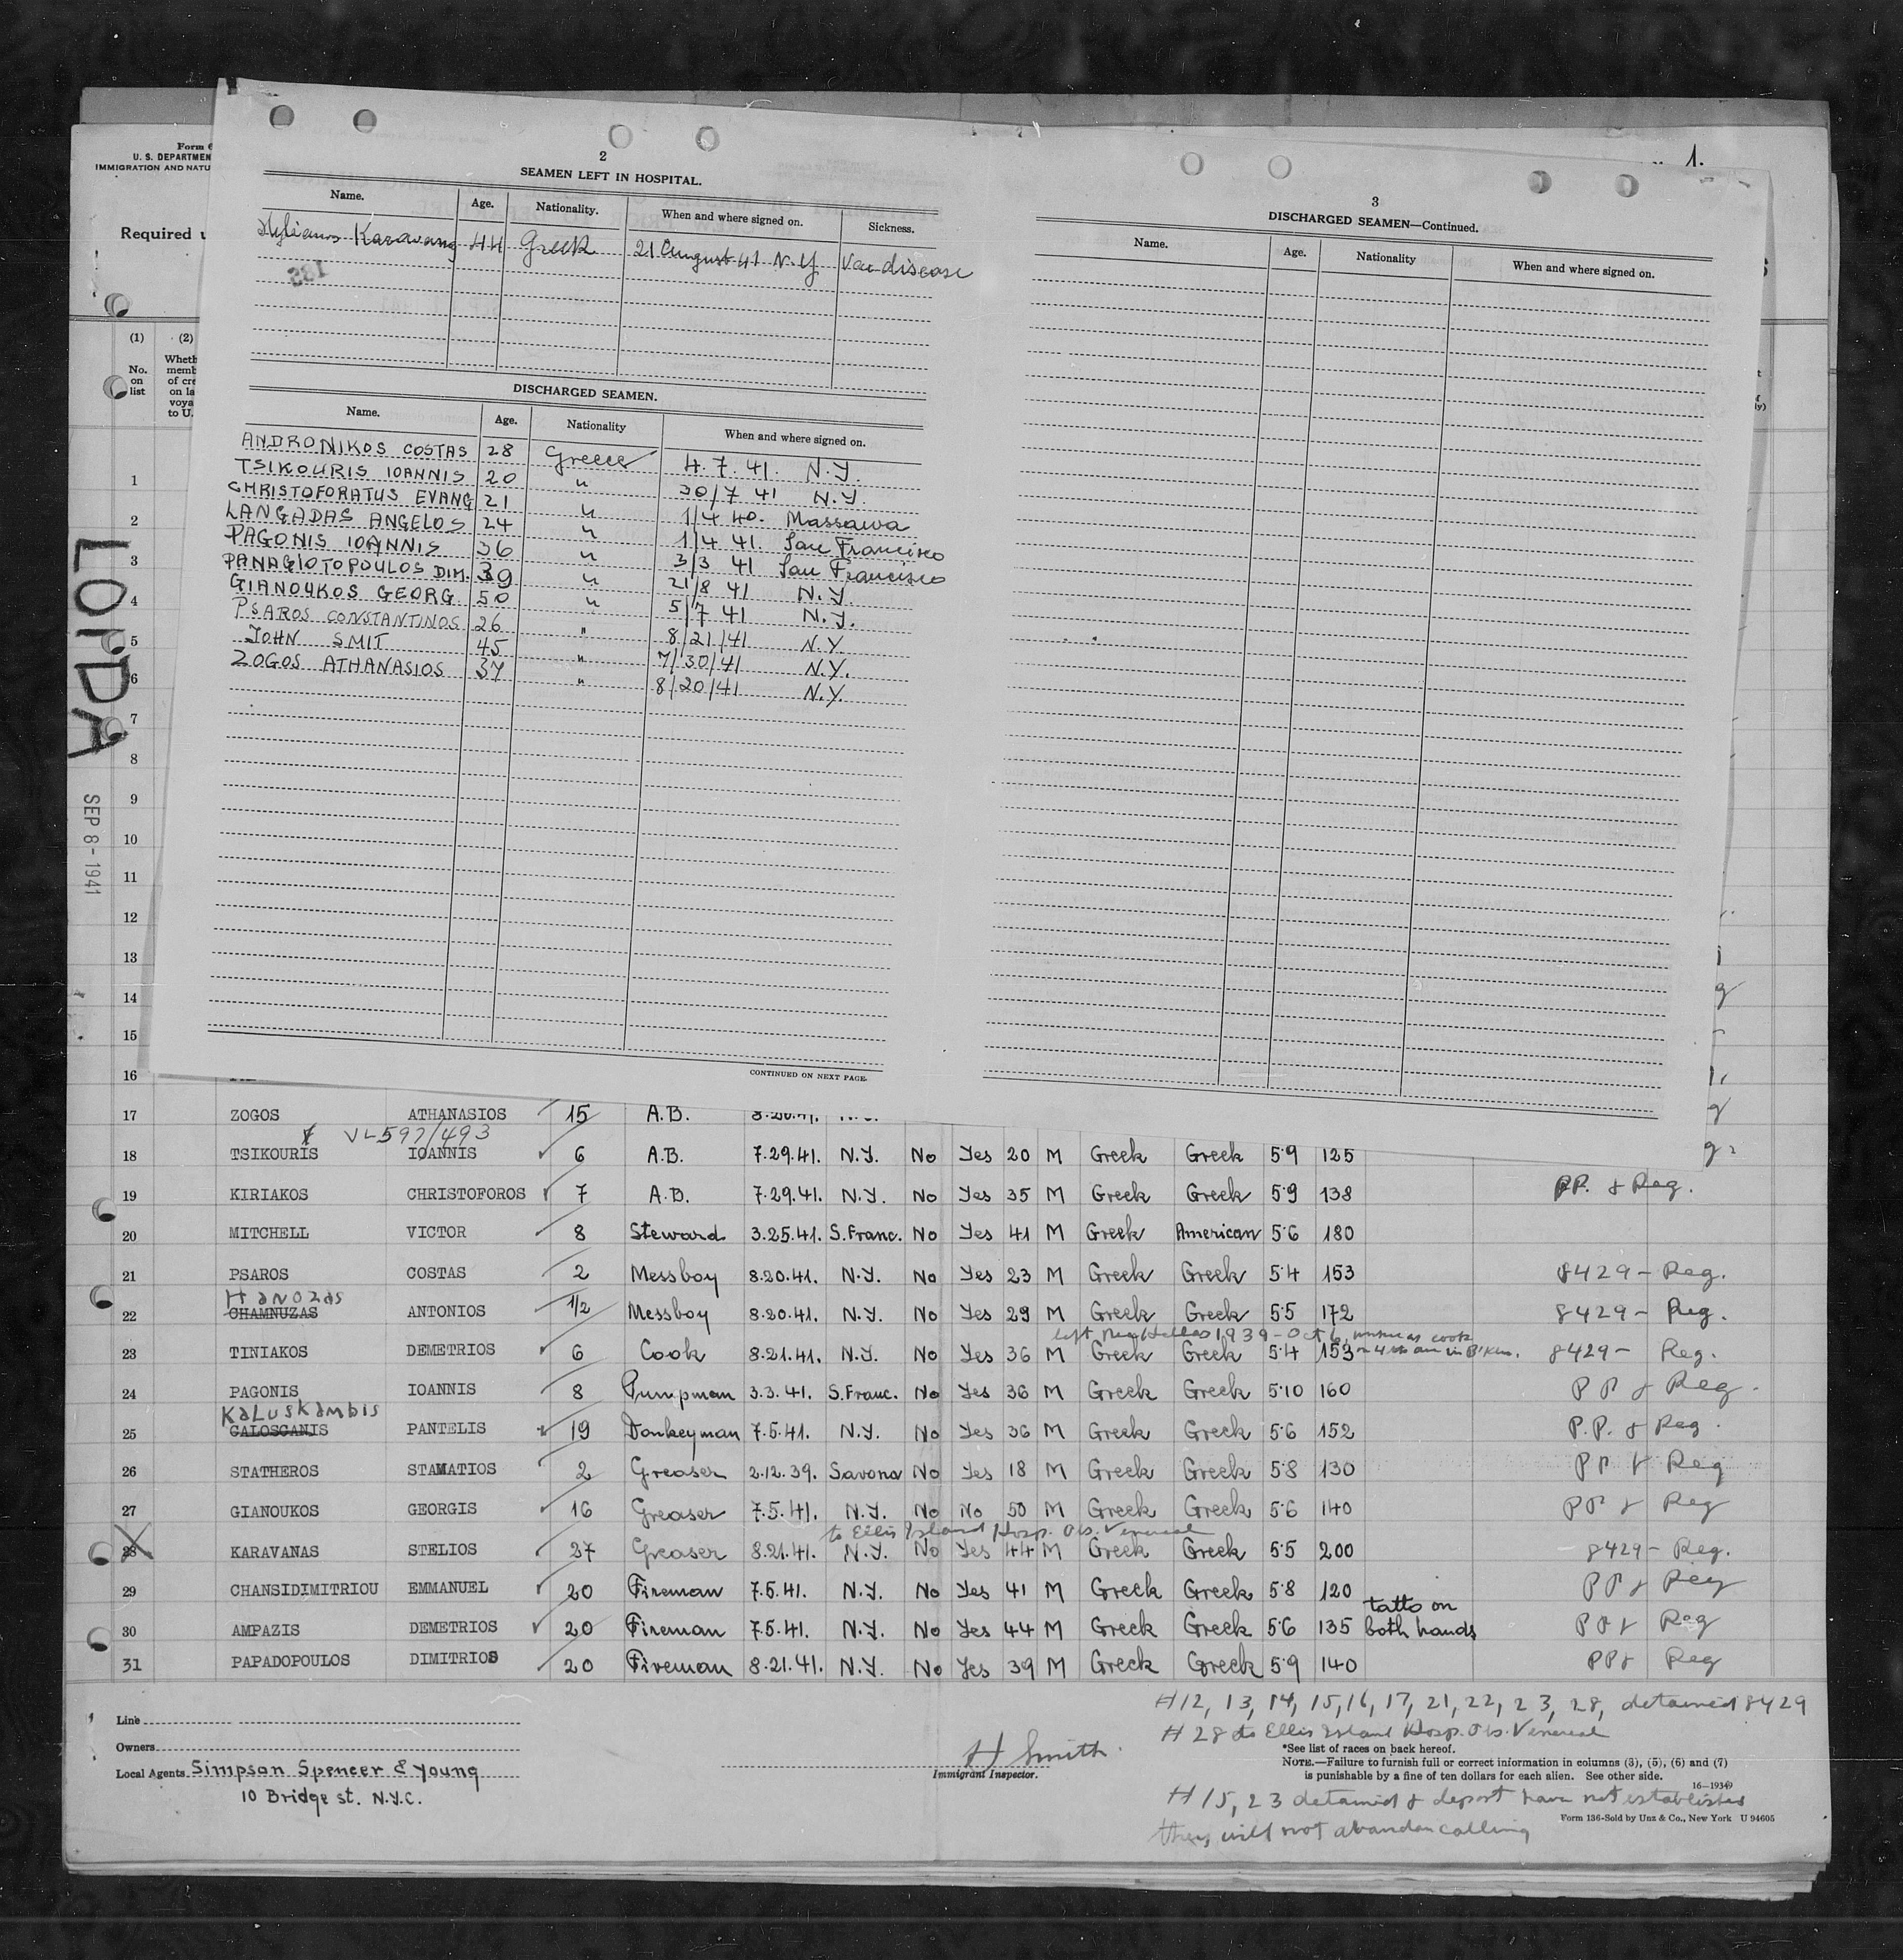 Form 6
U. S. DEPARTMEN
IMMIGRATION AND NATU
1.
Required u
LOIDA
SEP 8 - 1941
2
SEAMEN LEFT IN HOSPITAL.
Name. Age. Nationality. When and where signed on. Sickness.
Stylianos Karavanas 44 Greek 21 August 41 N.Y Ven disease
188
DISCHARGED SEAMEN.
Name. Age. Nationality When and where signed on.
ANDRONIKOS COSTAS 28 Greece 4.7.41. N.Y.
TSIKOURIS IOANNIS 20 " 30/7 41 N.Y
CHRISTOFORATUS EVANG 21 " 1/4 40. Massawa
LANGADAS ANGELOS 24 " 1/4 41. San Francisco
PAGONIS IOANNIS 36 " 3/3 41 San Francisco
PANAGIOTOPOULOS DIM. 39 " 21/8 41 N.Y.
GIANOUKOS GEORG. 50 " 5/7 41 N.Y.
PSAROS CONSTANTINOS 26 " 8/21/41 N.Y.
JOHN SMIT 45 " 7/30/41 N.Y.
ZOGOS ATHANASIOS 37 " 8/20/41 N.Y.
CONTINUED ON NEXT PAGE.
3
DISCHARGED SEAMEN—Continued.
Name. Age. Nationality When and where signed on.
(1) (2)
No. on list
Wheth
memb
of cre
on la
voya
to U.
1
2
3
4
5
6
7
8
9
10
11
12
13
14
15
16
17 ZOGOS ATHANASIOS 15 A.B. 8.20.41.
VL 597/493
18 TSIKOURIS IOANNIS 6 A.B. 7.29.41. N.Y. No Yes 20 M Greek Greek 5·9 125
19 KIRIAKOS CHRISTOFOROS 7 A.B. 7.29.41. N.Y. No Yes 35 M Greek Greek 5·9 138 PP. & Reg.
20 MITCHELL VICTOR 8 Steward 3.25.41. S.Franc. No Yes 41 M Greek American 5·6 180
21 PSAROS COSTAS 2 Messboy 8.20.41. N.Y. No Yes 23 M Greek Greek 5·4 153 8429 - Reg.
Hanozas
22 CHAMNUZAS ANTONIOS 1/2 Messboy 8.20.41. N.Y. No Yes 29 M Greek Greek 5·5 172 8429 - Reg.
left Nea Hellas 1939 - Oct 6, cook
23 TINIAKOS DEMETRIOS 6 Cook 8.21.41. N.Y. No Yes 36 M Greek Greek 5·4 153 8429 - Reg.
24 PAGONIS IOANNIS 8 Pumpman 3.3.41. S.Franc. No Yes 36 M Greek Greek 5·10 160 PP & Reg.
Kaluskambis
25 GALOSGANIS PANTELIS 19 Donkeyman 7.5.41. N.Y. No Yes 36 M Greek Greek 5·6 152 P.P. & Reg.
26 STATHEROS STAMATIOS 2 Greaser 2.12.39. Savona No Yes 18 M Greek Greek 5·8 130 PP & Reg
27 GIANOUKOS GEORGIS 16 Greaser 7.5.41. N.Y. No No 50 M Greek Greek 5·6 140 PP & Reg
to Ellis Island Hosp. Obs. Venereal
28 KARAVANAS STELIOS 27 Greaser 8.21.41. N.Y. No Yes 44 M Greek Greek 5·5 200 8429 - Reg.
29 CHANSIDIMITRIOU EMMANUEL 20 Fireman 7.5.41. N.Y. No Yes 41 M Greek Greek 5·8 120 PP & Reg
30 AMPAZIS DEMETRIOS 20 Fireman 7.5.41. N.Y. No Yes 44 M Greek Greek 5·6 135 tatto on both hands PP & Reg
31 PAPADOPOULOS DIMITRIOS 20 Fireman 8.21.41. N.Y. No Yes 39 M Greek Greek 5·9 140 PP & Reg
# 12, 13, 14, 15, 16, 17, 21, 22, 23, 28, detained 8429
# 28 to Ellis Island Hosp. Obs. Venereal
Line
Owners
Local Agents Simpson Spencer & Young
10 Bridge st. N.Y.C.
H Smith
Immigrant Inspector.
*See list of races on back hereof.
NOTE.—Failure to furnish full or correct information in columns (3), (5), (6) and (7)
is punishable by a fine of ten dollars for each alien. See other side.
16—19349
# 15, 23 detained & deport have not established
they will not abandon calling
Form 136-Sold by Unz & Co., New York U 94605